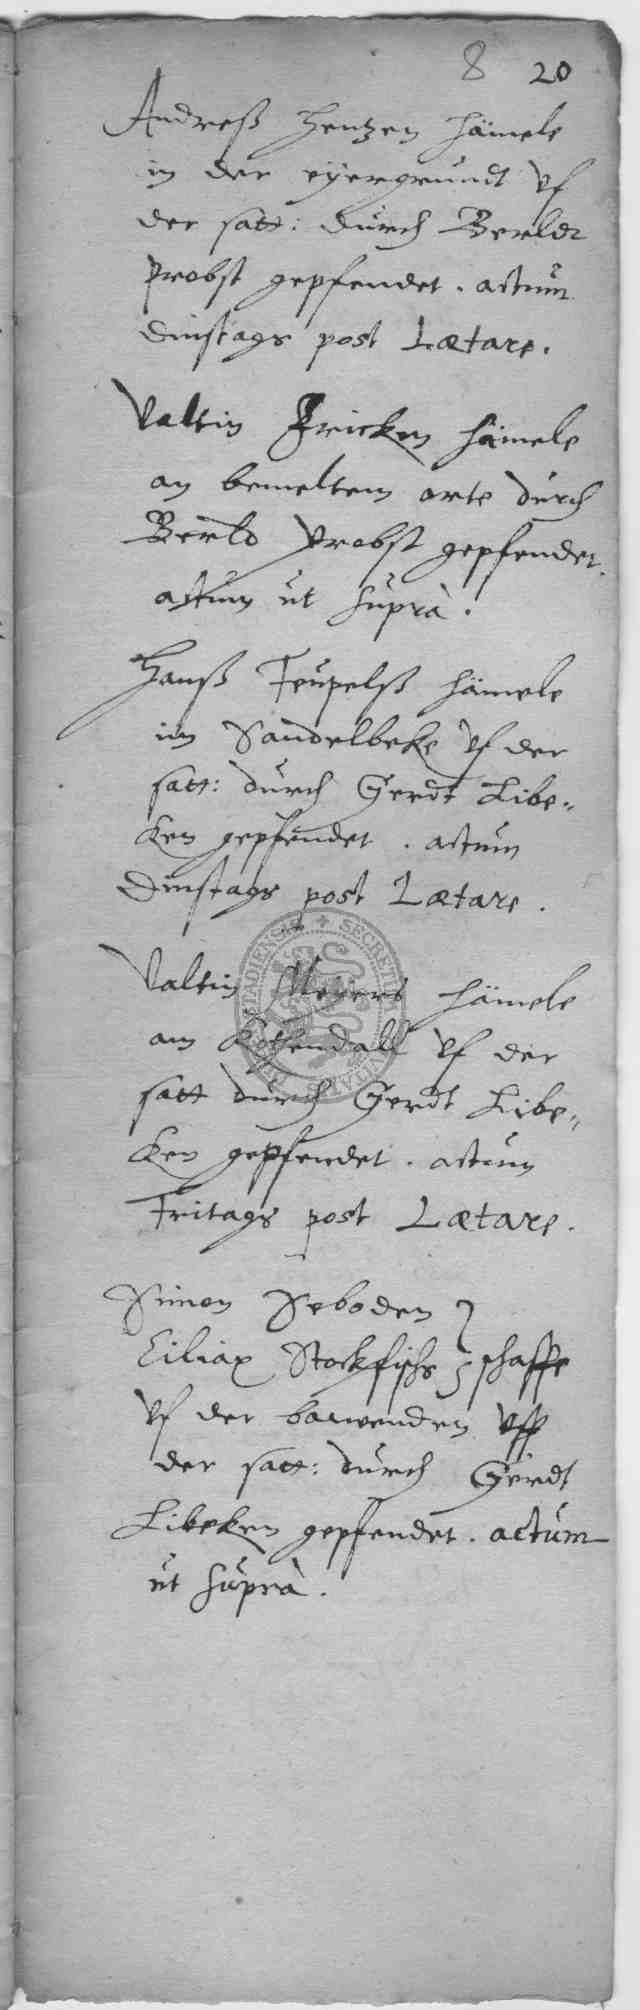 8 20
Andreß Hentzen hämele
in der eyergrundt vf
der satt: durch Berldt
Probst gepfendet. actum
Dinstags post Lætare.
Valtin Fricken hämele
an bemeltem orte durch
Berld Probst gepfendet.
actum ut suprà.
Hanß Teupelß hämele
im Sandelbeke vf der
satt: durch Gerdt Libe-
ken gepfendet. actum
Dinstags post Lætare.
Valtin Meyers hämele
am Kothendall vf der
satt durch Gerdt Libe-
ken gepfendet. actum
Fritags post Lætare.
Simon Seboden
Ciliax Stockfischs schaffe
vf der barwenden vff
der satt: durch Gerdt
Libeken gepfendet. actum
ut suprà.